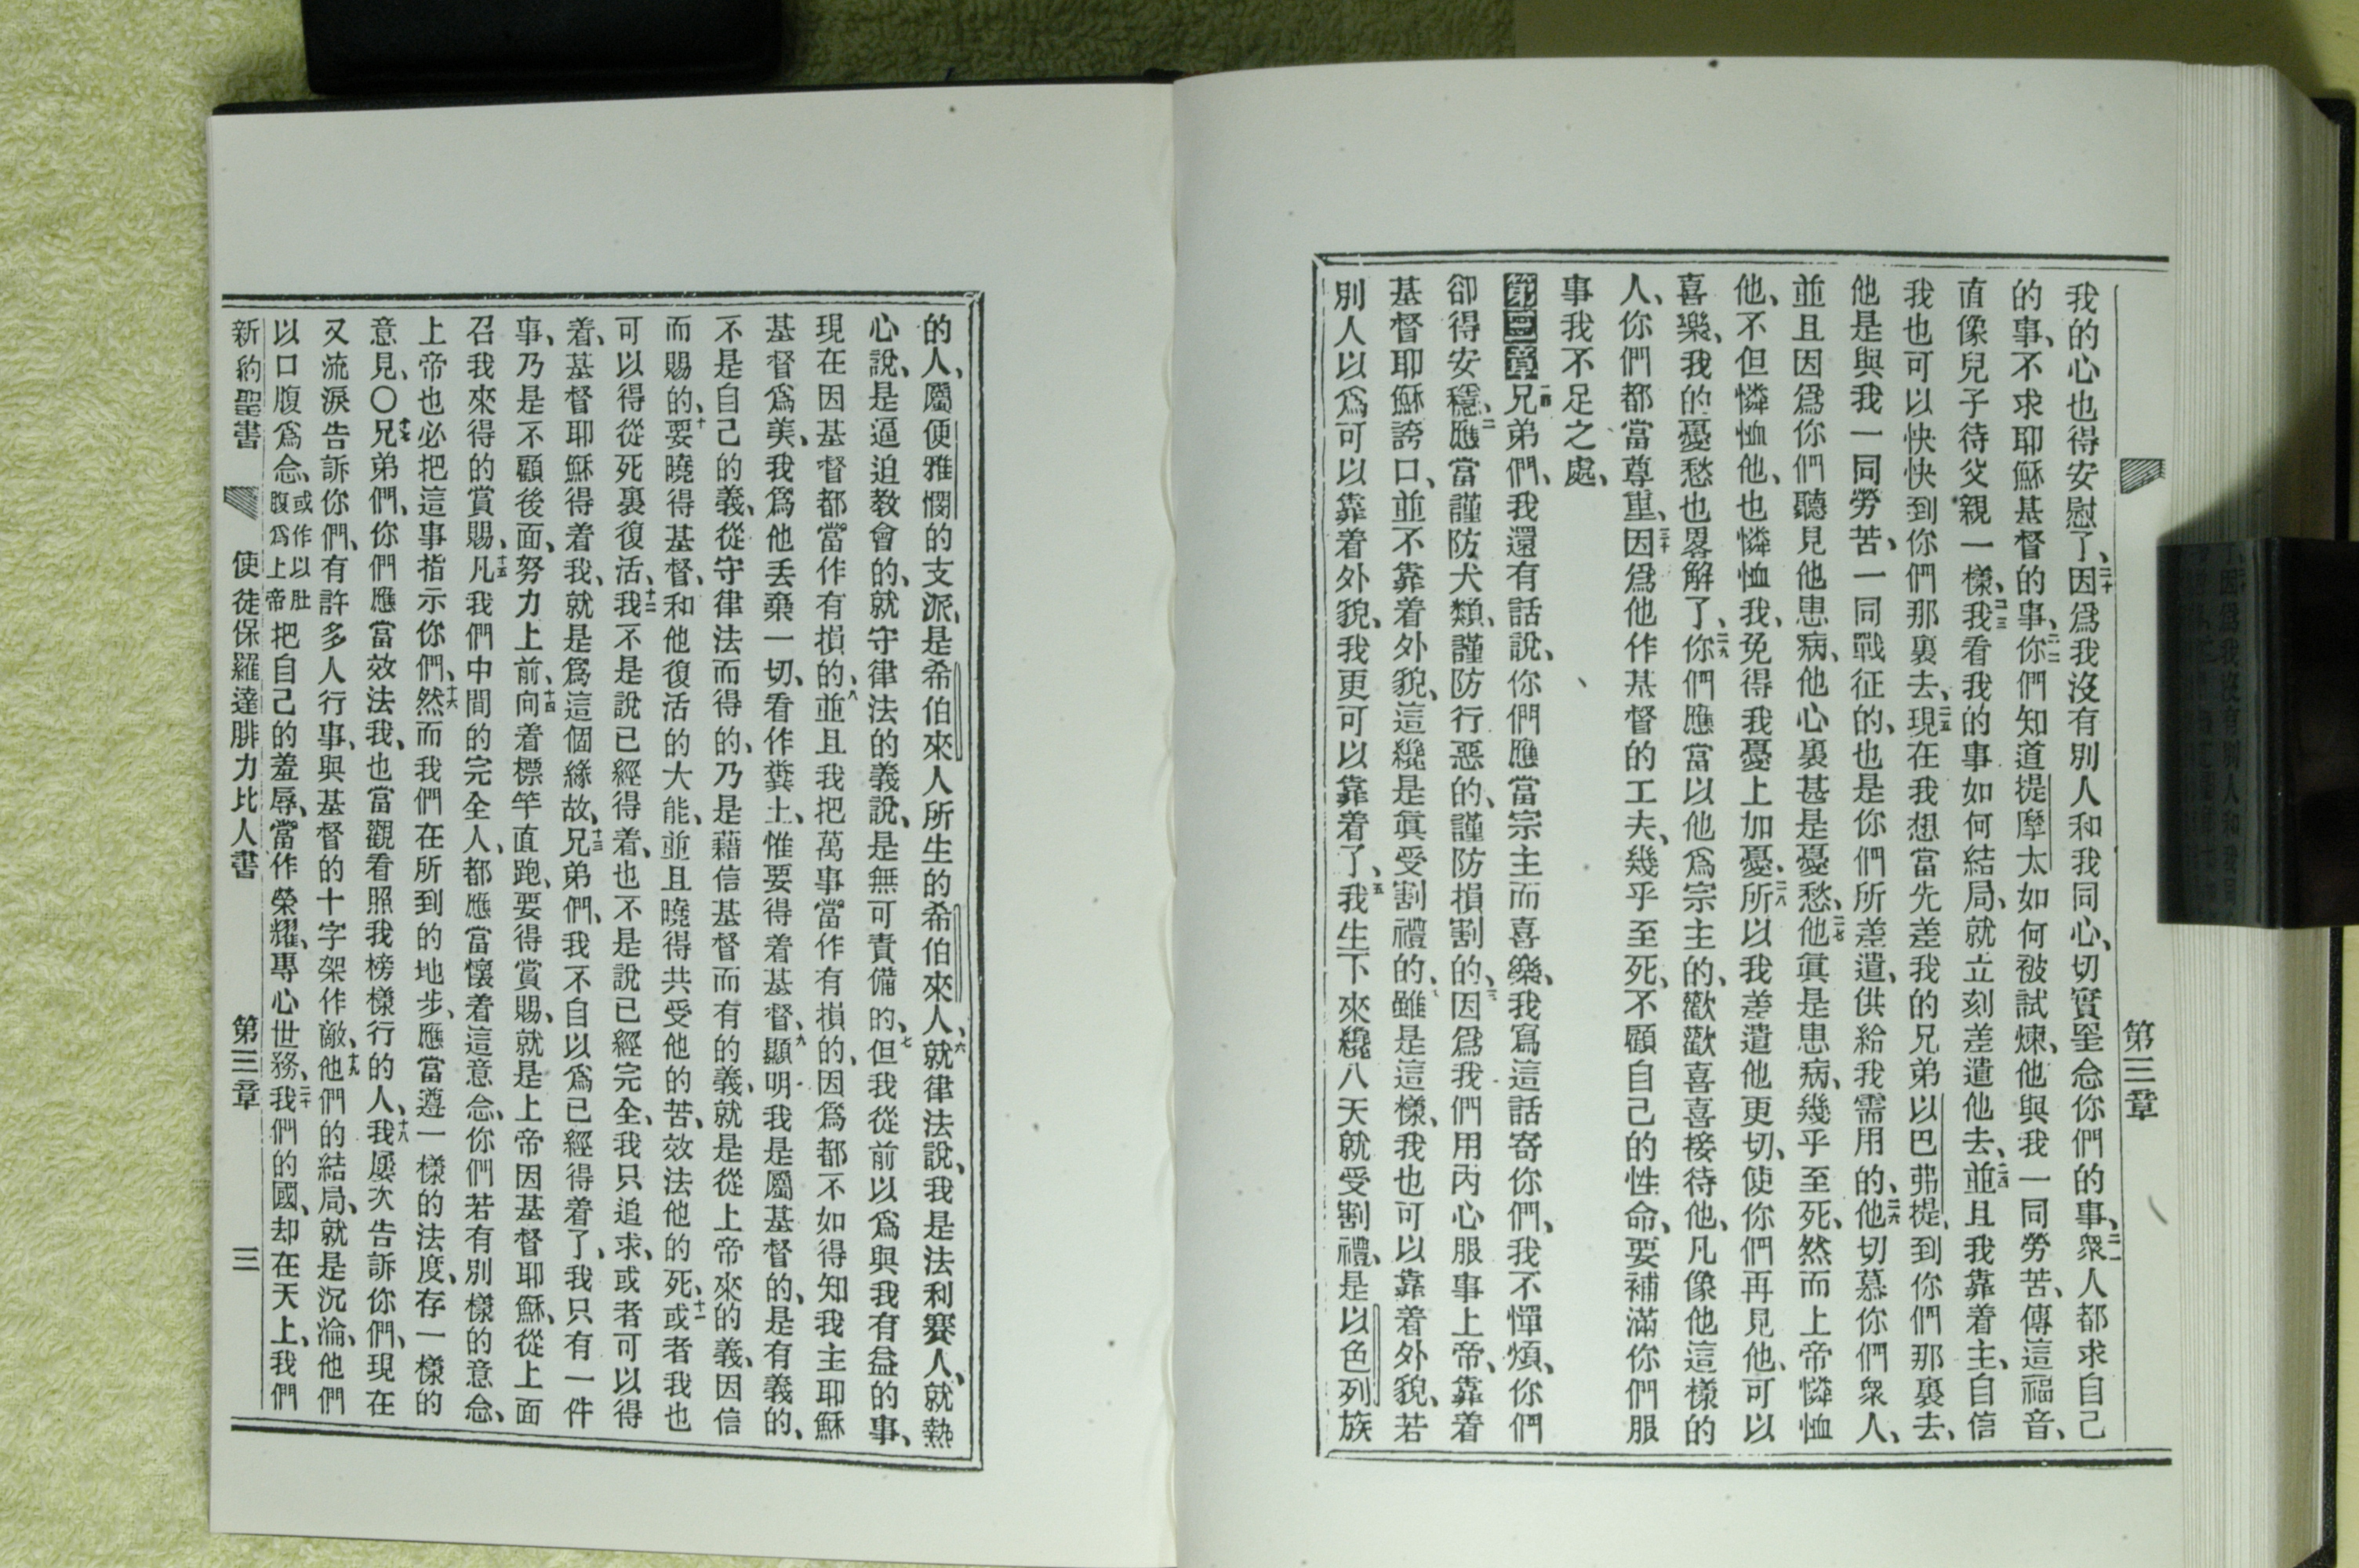 第三章
我的心也得安慰了、二十因爲我沒有別人和我同心、切實罣念你們的事、二一衆人都求自己
的事、不求耶穌基督的事、二二你們知道提摩太如何被試煉、他與我一同勞苦、傳這福音、
直像兒子待父親一樣、二三我看我的事如何結局、就立刻差遣他去、二四並且我靠着主、自信
我也可以快快到你們那裏去、二五現在我想當先差我的兄弟以巴弗提、到你們那裏去、
他是與我一同勞苦、一同戰征的、也是你們所差遣、供給我需用的、二六他切慕你們衆人、
並且因爲你們聽見他患病、他心裏甚是憂愁、二七他眞是患病、幾乎至死、然而上帝憐恤
他、不但憐恤他、也憐恤我、免得我憂上加憂、二八所以我差遣他更切、使你們再見他、可以
喜樂、我的憂愁也畧解了、二九你們應當以他爲宗主的、歡歡喜喜接待他、凡像他這樣的
人、你們都當尊重、三十因爲他作基督的工夫、幾乎至死、不顧自己的性命、要補滿你們服
事我不足之處、
第三章一兄弟們、我還有話說、你們應當宗主而喜樂、我寫這話寄你們、我不憚煩、你們
卻得安穩、二應當謹防犬類、謹防行惡的、謹防損割的、三因爲我們用丙心服事上帝、靠着
基督耶穌誇口、並不靠着外貌、這纔是眞受割禮的、四雖是這樣、我也可以靠着外貌、若
別人以爲可以靠着外貌、我更可以靠着了、五我生下來纔八天就受割禮、是以色列族
的人、屬便雅憫的支派、是希伯來人所生的希伯來人、六就律法說、我是法利賽人、就熱
心說、是逼迫敎會的、就守律法的義說、是無可責備的、七但我從前以爲與我有益的事、
現在因基督都當作有損的、八並且我把萬事當作有損的、因爲都不如得知我主耶穌
基督爲美、我爲他丟棄一切、看作糞土、惟要得着基督、九顯明我是屬基督的、是有義的、
不是自己的義、從守律法而得的、乃是藉信基督而有的義、就是從上帝來的義、因信
而賜的、十要曉得基督、和他復活的大能、並且曉得共受他的苦、效法他的死、十一或者我也
可以得從死裏復活、十二我不是說已經得着、也不是說已經完全、我只追求、或者可以得
着、基督耶穌得着我、就是爲這個緣故、十三兄弟們、我不自以爲已經得着了、我只有一件
事、乃是不顧後面、努力上前、十四向着標竿直跑、要得賞賜、就是上帝因基督耶穌、從上面
召我來得的賞賜、十五凡我們中間的完全人、都應當懷着這意念、你們若有別樣的意念、
上帝也必把這事指示你們、十六然而我們在所到的地步、應當遵一樣的法度、存一樣的
意見、〇十七兄弟們、你們應當效法我、也當觀看照我榜樣行的人、十八我屢次告訴你們、現在
又流淚告訴你們、有許多人行事、與基督的十字架作敵、十九他們的結局、就是沉淪、他們
以口腹爲念、或作以肚腹爲上帝把自己的羞辱、當作榮耀、專心世務、二十我們的國、却在天上、我們
新約聖書 使徒保羅達腓力比人書 第三章 三